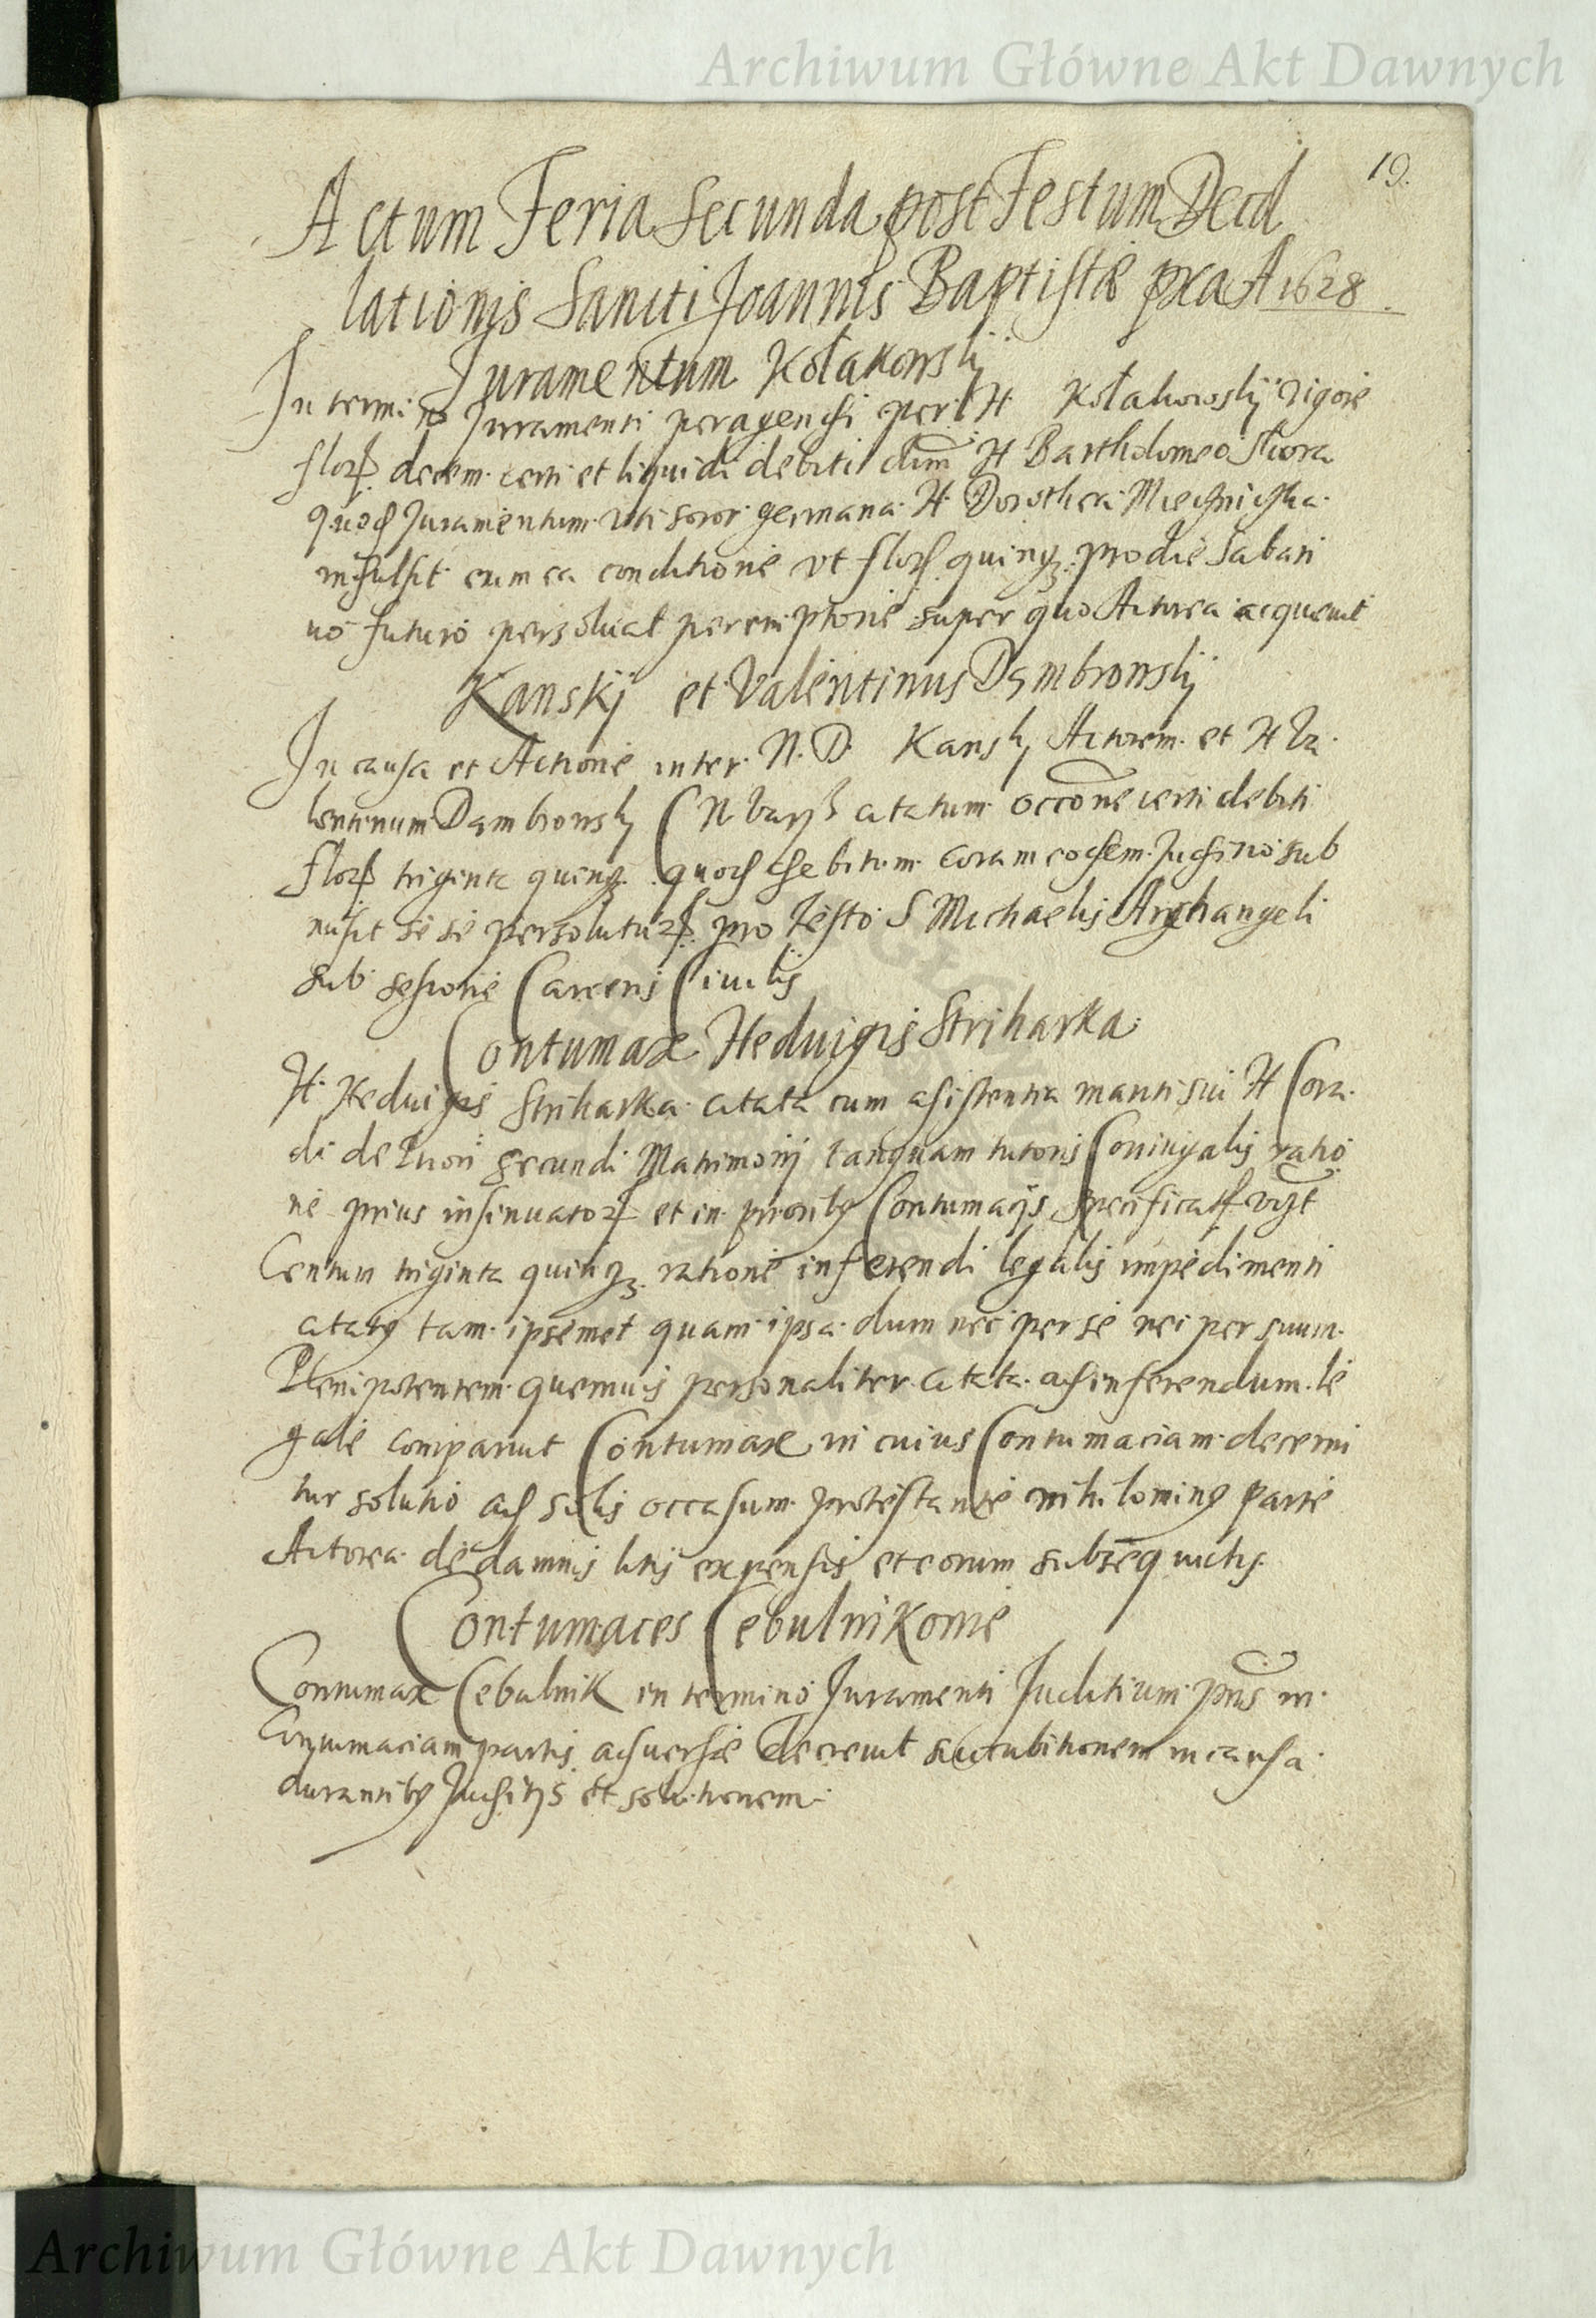 Archiwum Główne Akt Dawnych
19.
Actum Feria Secunda post Festum Decol
lationis Sancti Joannis Baptistæ pxa A 1628.
Juramentum Kołakowskij
In termino Juramenti peragendi per H Kołakowskij vigore
flor. decem certi et liquidi debiti cum H Bartholomeo
quod Juramentum uti soror germana H. Dorothea
indulsit cum ea conditione ut flor quinq. pro die Sabati
no futuro persoluat peremptorie super quo Actorea acqueuit
Kanskij et Valentinus Dambronskij
In causa et Actione inter N. D. Kansky Actorem et H Va
lentinum Dambronsky citatum occōne certi debiti
flor triginta quinq. quod debitum coram eodem Juditio sub
misit se se persolutur. pro Festo S Michaelis Archangeli
sub sessione Carceris Ciuilis
Contumax Heduigis Striharka
H. Heduigis Striharka citata cum asistentia mariti sui H Cora
di de secundi Matrimonij tanquam tutoris Coniugalis ratio
ne prius insinuator et in priorib9 Contumacijs specificat vizt
Centum triginta quinq. ratione inferendi legalis impedimenti
citat9 tam ipsemet quam ipsa dum nec per se nec per suum
Plenipotentem quemuis personaliter citata ad inferendum le
gale comparuit Contumax in cuius Contumaciam decerni
tur solutio ad solis occasum protestante nihilomin9 parte
Actorea de damnis litis expensis et eorum subsequutis.
Contumaces Cebulnikowie
Contumax Cebulnik in termino Juramenti Juditium pñs in
Contumaciam partis aduersæ decreuit succubitionem in causa
durantib9 Juditijs et solutionem
Archiwum Główne Akt Dawnych